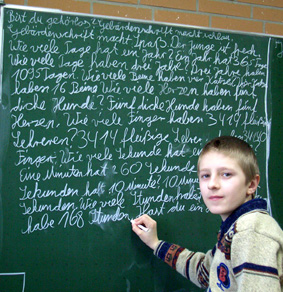 Bist du gehörlos? Gebärdenschrift macht schlau.
Gebärdenschrift macht Spaß. Der Junge ist frech.
Wie viele Tage hat ein Jahr? Ein Jahr hat 365 Tage.
Wie viele Tage haben drei Jahre? Drei Jahre haben
1095 Tagen. Wie viele Beine haben vier Katzen?
haben 16 Beine. Wie viele Herzen haben fünf
dicke Hunde? Fünf dicke Hunde haben fünf
Herzen. Wie viele Finger haben 3414 fleißige
Lehrer? 3414 fleißige Lehrer
Finger. Wie viele Sekunde hat ein
Eine Minuten hat 60 Sekunde.
Sekunden hat 10 Minute? 10 Minu
Sekunden. Wie viele Stunden habe
habe 168 Stunden. Hast du ein